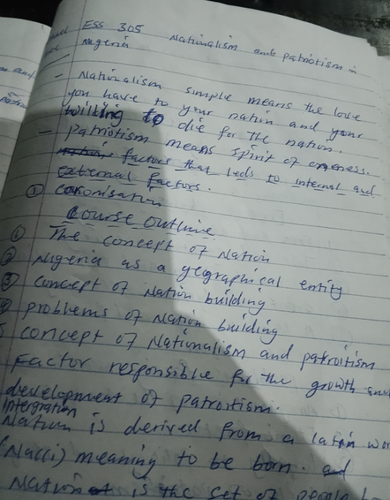 ESS 305 Nationalism and patriotism in
Nigeria
- Nationalism simple means the love
you have to your nation and your
willing to die for the nation.
- Patriotism means spirit of oneness.
factors that leds to internal and
external factors.
① colonisation
Course outline
① The concept of Nation
② Nigeria as a geographical entity
③ concept of Nation building
④ problems of Nation building
5 concept of Nationalism and patroitism
Factor responsible for the growth and
development of patroitism.
intergration
Nation is derived from a latin wor
(Nac(i) meaning to be born. and
Nation is the set of people